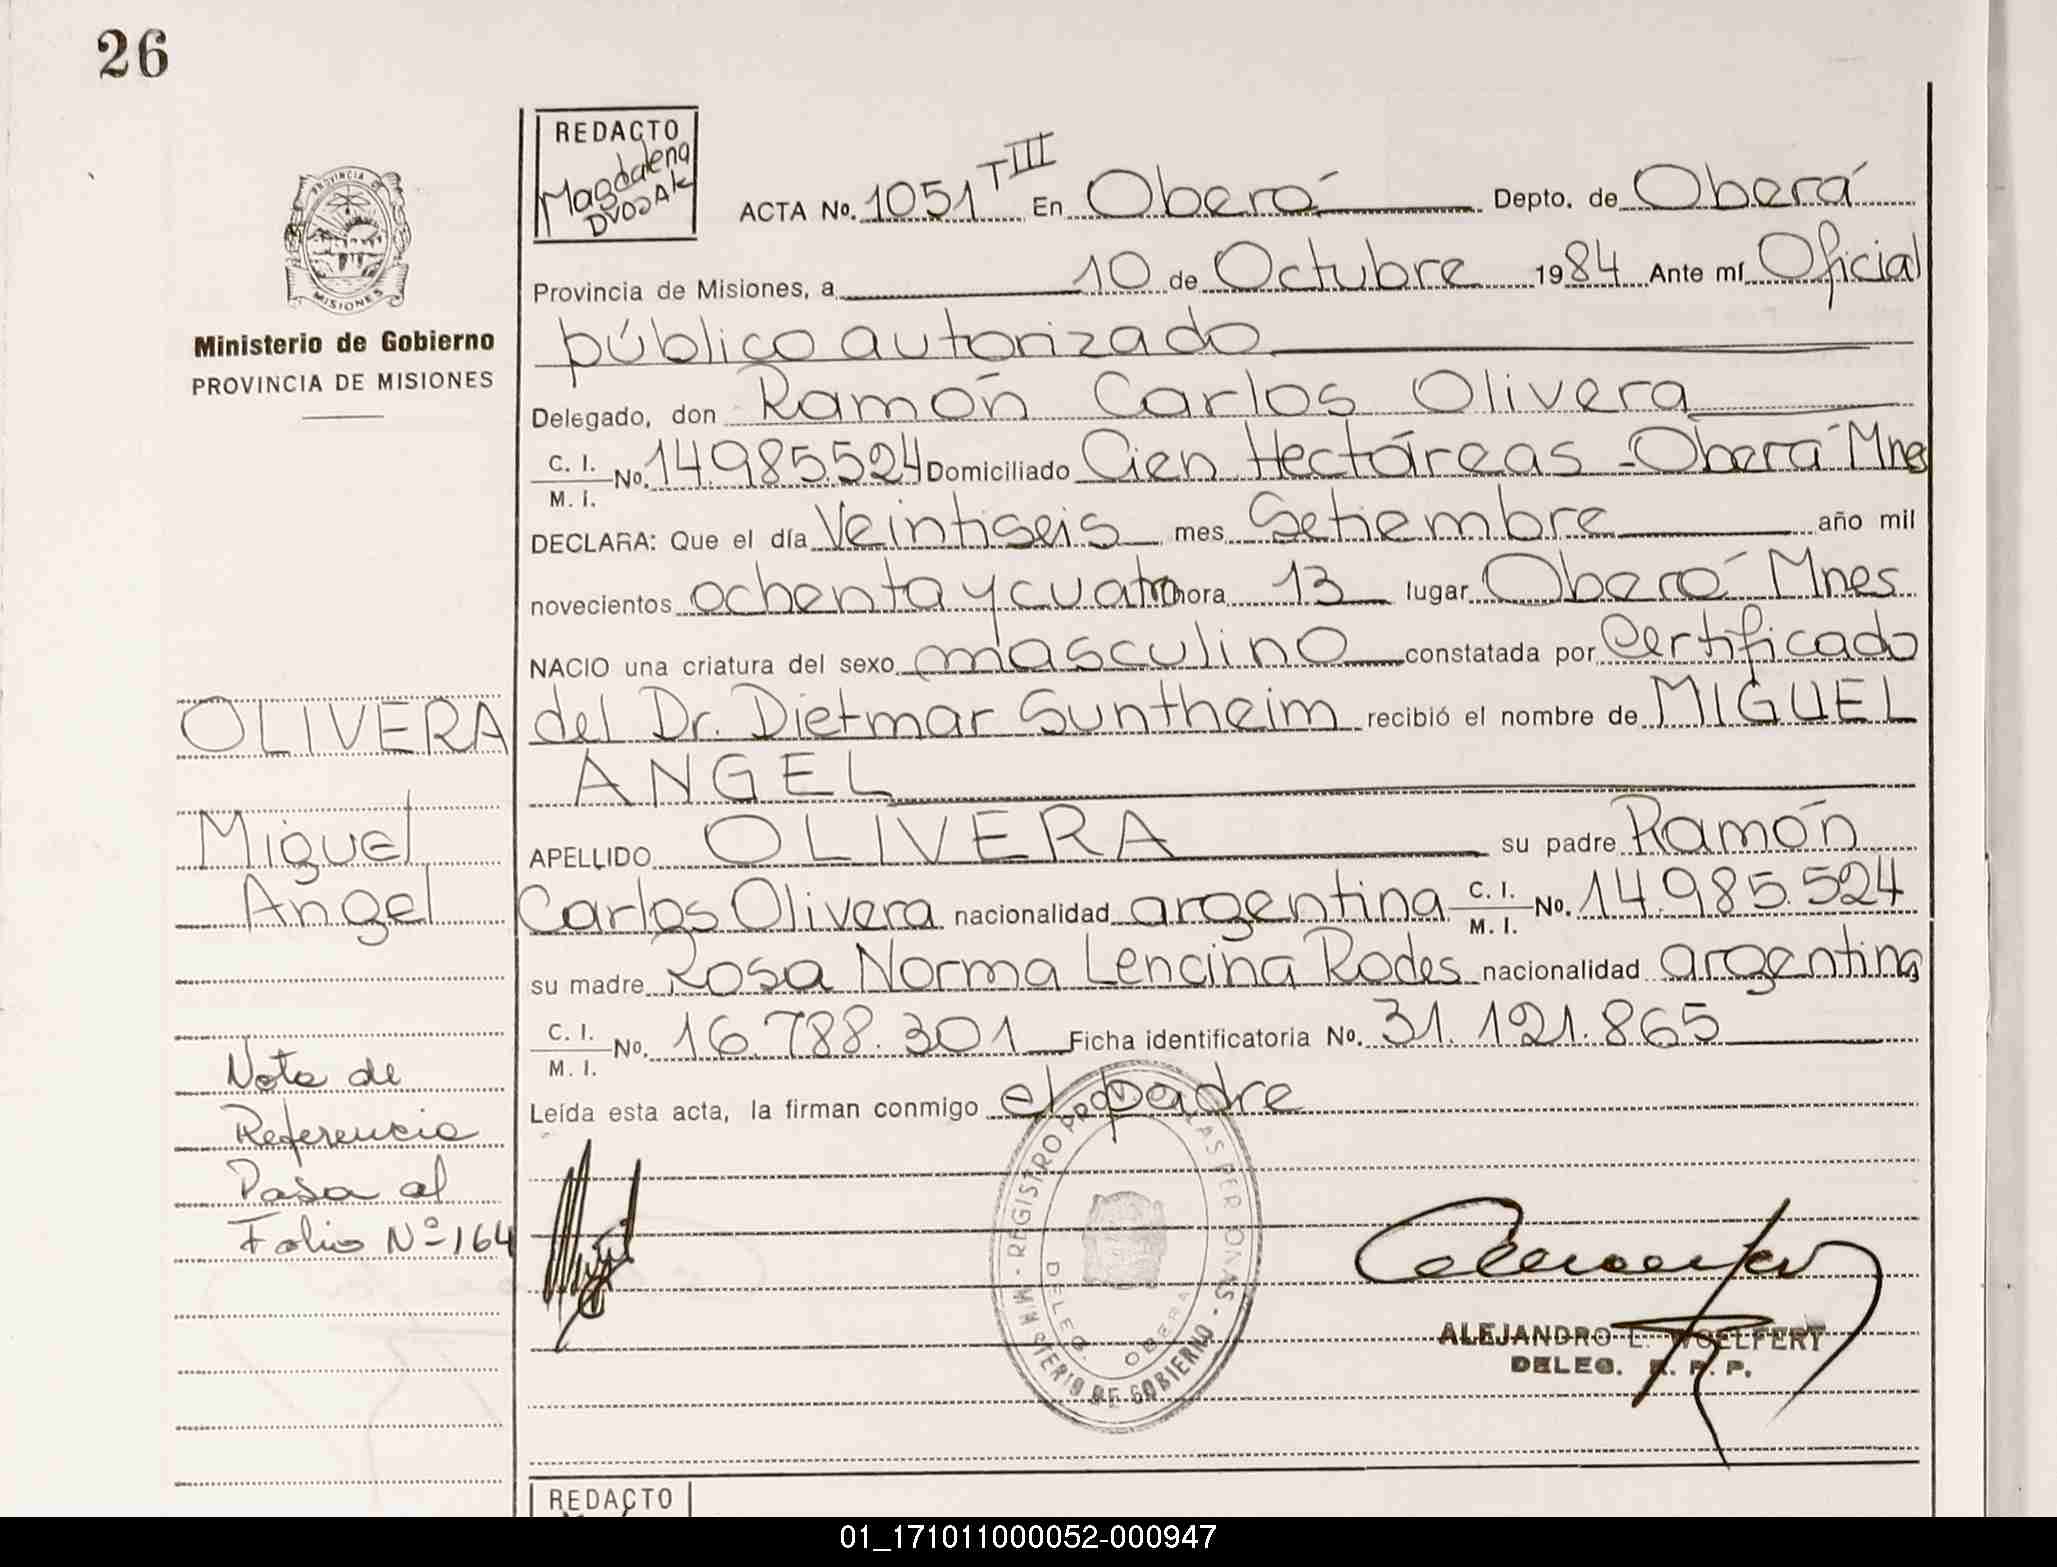 26
REDACTO
Magdalena
DVOJAK
ACTA No. 1051 TIII En Oberá Depto. de Oberá
PROVINCIA DE
MISIONES
Provincia de Misiones, a 10 de Octubre 1984 Ante mí Oficial
Ministerio de Gobierno
público autorizado
PROVINCIA DE MISIONES
Delegado, don Ramón Carlos Olivera
C. I.
M. I. No. 14.985.524 Domiciliado Cien Hectáreas - Oberá Mnes
DECLARA: Que el día Veintiseis mes Setiembre año mil
novecientos ochenta y cuatro hora 13 lugar Oberá Mnes
NACIO una criatura del sexo masculino constatada por Certificado
OLIVERA
del Dr. Dietmar Suntheim recibió el nombre de MIGUEL
ANGEL
Miguel
APELLIDO OLIVERA su padre Ramón
Angel
Carlos Olivera nacionalidad argentina C. I. M. I. No. 14.985.524
su madre Rosa Norma Lencina Rodes nacionalidad argentina
C. I.
M. I. No. 16.788.301 Ficha identificatoria No. 31.121.865
Nota de
Leída esta acta, la firman conmigo el padre
Referencia
Pasa al
Folio Nº 164
REGISTRO PROV. DE LAS PERSONAS - MINISTERIO DE GOBIERNO
DELEG. OBERA
ALEJANDRO L. WOELFERT
DELEG. R. P. P.
REDACTO
01_171011000052-000947